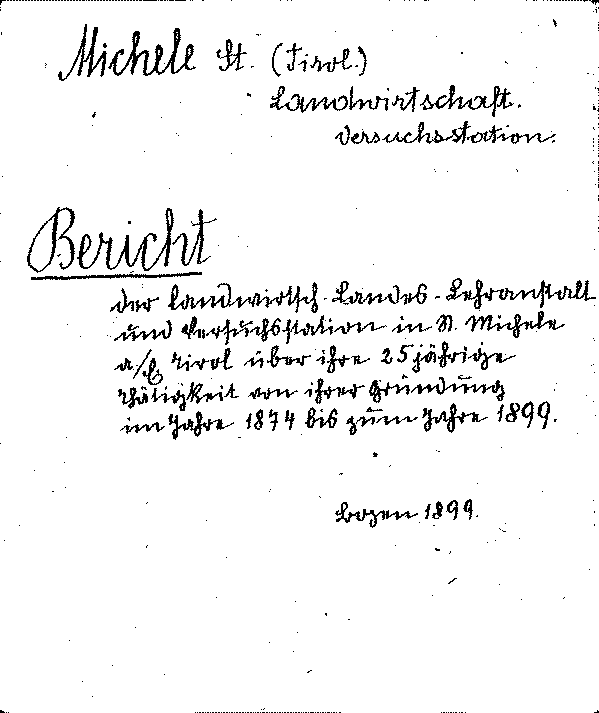 Michele St. (Tirol.)
Landwirtschaft.
Versuchsstation.
Bericht
der landwirtsch. Landes-Lehranstalt
und Versuchsstation in St. Michele
a/E Tirol über ihre 25jährige
Thätigkeit von ihrer Gründung
im Jahre 1874 bis zum Jahre 1899.
Bozen 1899.